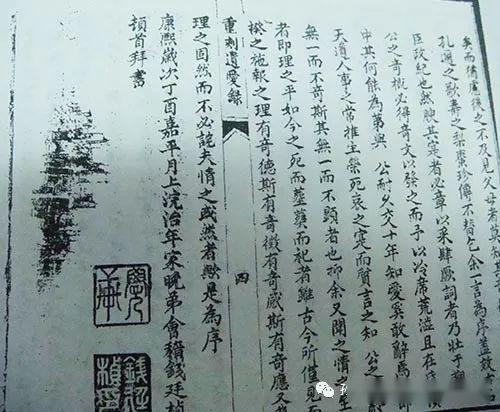 矣而猶慮後之不及見父母者
孔邇之歌專之梨棗珍傳不替乞余一言為序蓋
臣政紀也然映其寔者必章以采肆厥詞者乃壯于
公之奇抱必得奇文以發之而予以冷席荒溢且在
中其何能為第與 公耐久六十年知愛英敢辭為
天道人事之常推主榮死哀之寔而質言之知 公之
無一而不奇斯其無一而不顯者也抑余又聞之情之
者即理之平如今之死而蓋葬而祀者雖古今所僅見
揆之施報之理有奇德斯有奇徵有奇感斯有奇應又
重刺遺愛錄
四
理之固然而不必詫夫情之或然者歟是為序
康熙歲次丁酉嘉平月上浣治年家晚弟會稽錢廷
頓首拜書